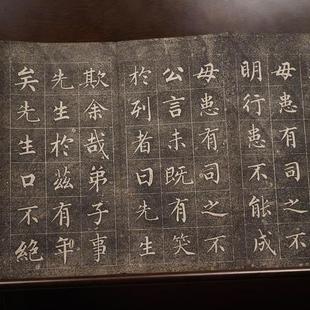 毋患有司之不
明行患不能成
毋患有司之不
公言未既有笑
於列者曰先生
欺余哉弟子事
先生於茲有年
矣先生口不絕